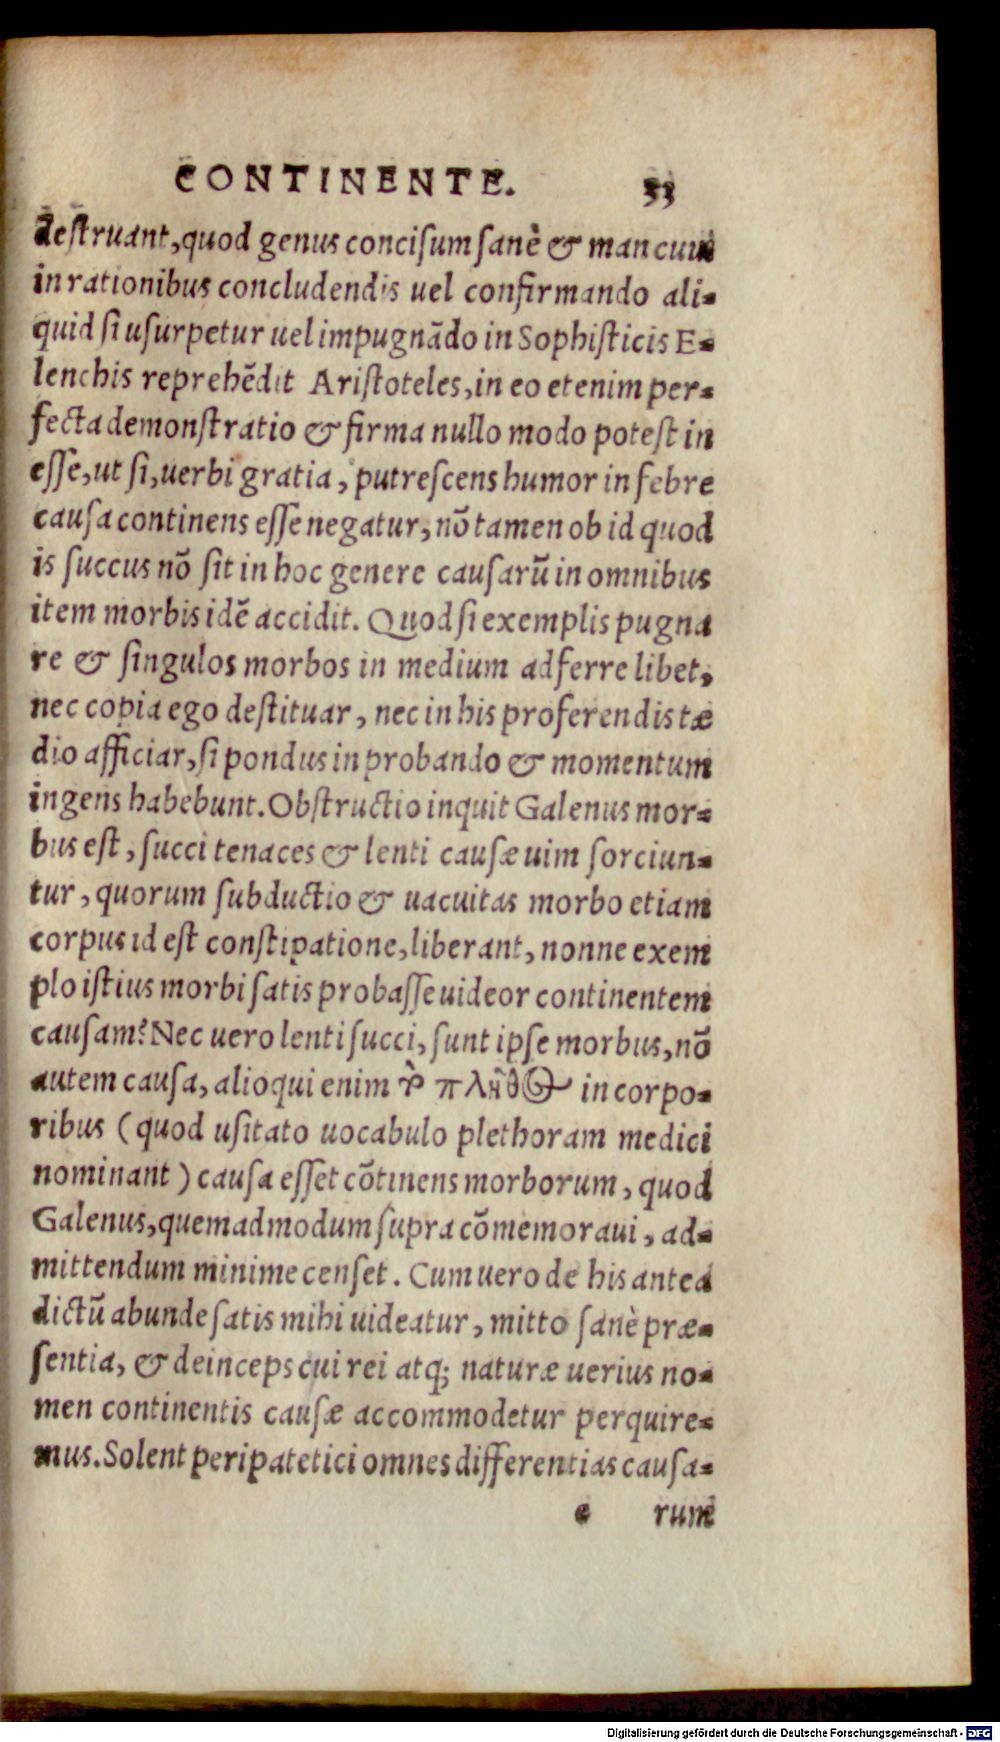 CONTINENTE. 33
destruant, quod genus concisum sanè & mancum
in rationibus concludendis uel confirmando ali-
quid si usurpetur uel impugnãdo in Sophisticis E-
lenchis reprehẽdit Aristoteles, in eo etenim per-
fecta demonstratio & firma nullo modo potest in
esse, ut si, uerbi gratia, putrescens humor in febre
causa continens esse negatur, nõ tamen ob id quod
is succus nõ sit in hoc genere causarũ in omnibus
item morbis idẽ accidit. Quod si exemplis pugna
re & singulos morbos in medium adferre libet,
nec copia ego destituar, nec in his proferendis tæ
dio afficiar, si pondus in probando & momentum
ingens habebunt. Obstructio inquit Galenus mor-
bus est, succi tenaces & lenti causæ uim sorciun-
tur, quorum subductio & uacuitas morbo etiam
corpus id est constipatione, liberant, nonne exem
plo istius morbi satis probasse uideor continentem
causam? Nec uero lenti succi, sunt ipse morbus, nõ
autem causa, alioqui enim τὸ πλῆθος in corpo-
ribus (quod usitato uocabulo plethoram medici
nominant) causa esset cõtinens morborum, quod
Galenus, quemadmodum supra cõmemoraui, ad-
mittendum minime censet. Cum uero de his antea
dictũ abunde satis mihi uideatur, mitto sanè præ-
sentia, & deinceps cui rei atq; naturæ uerius no-
men continentis causæ accommodetur perquire-
mus. Solent peripatetici omnes differentias causa-
e rum
Digitalisierung gefördert durch die Deutsche Forschungsgemeinschaft - DFG